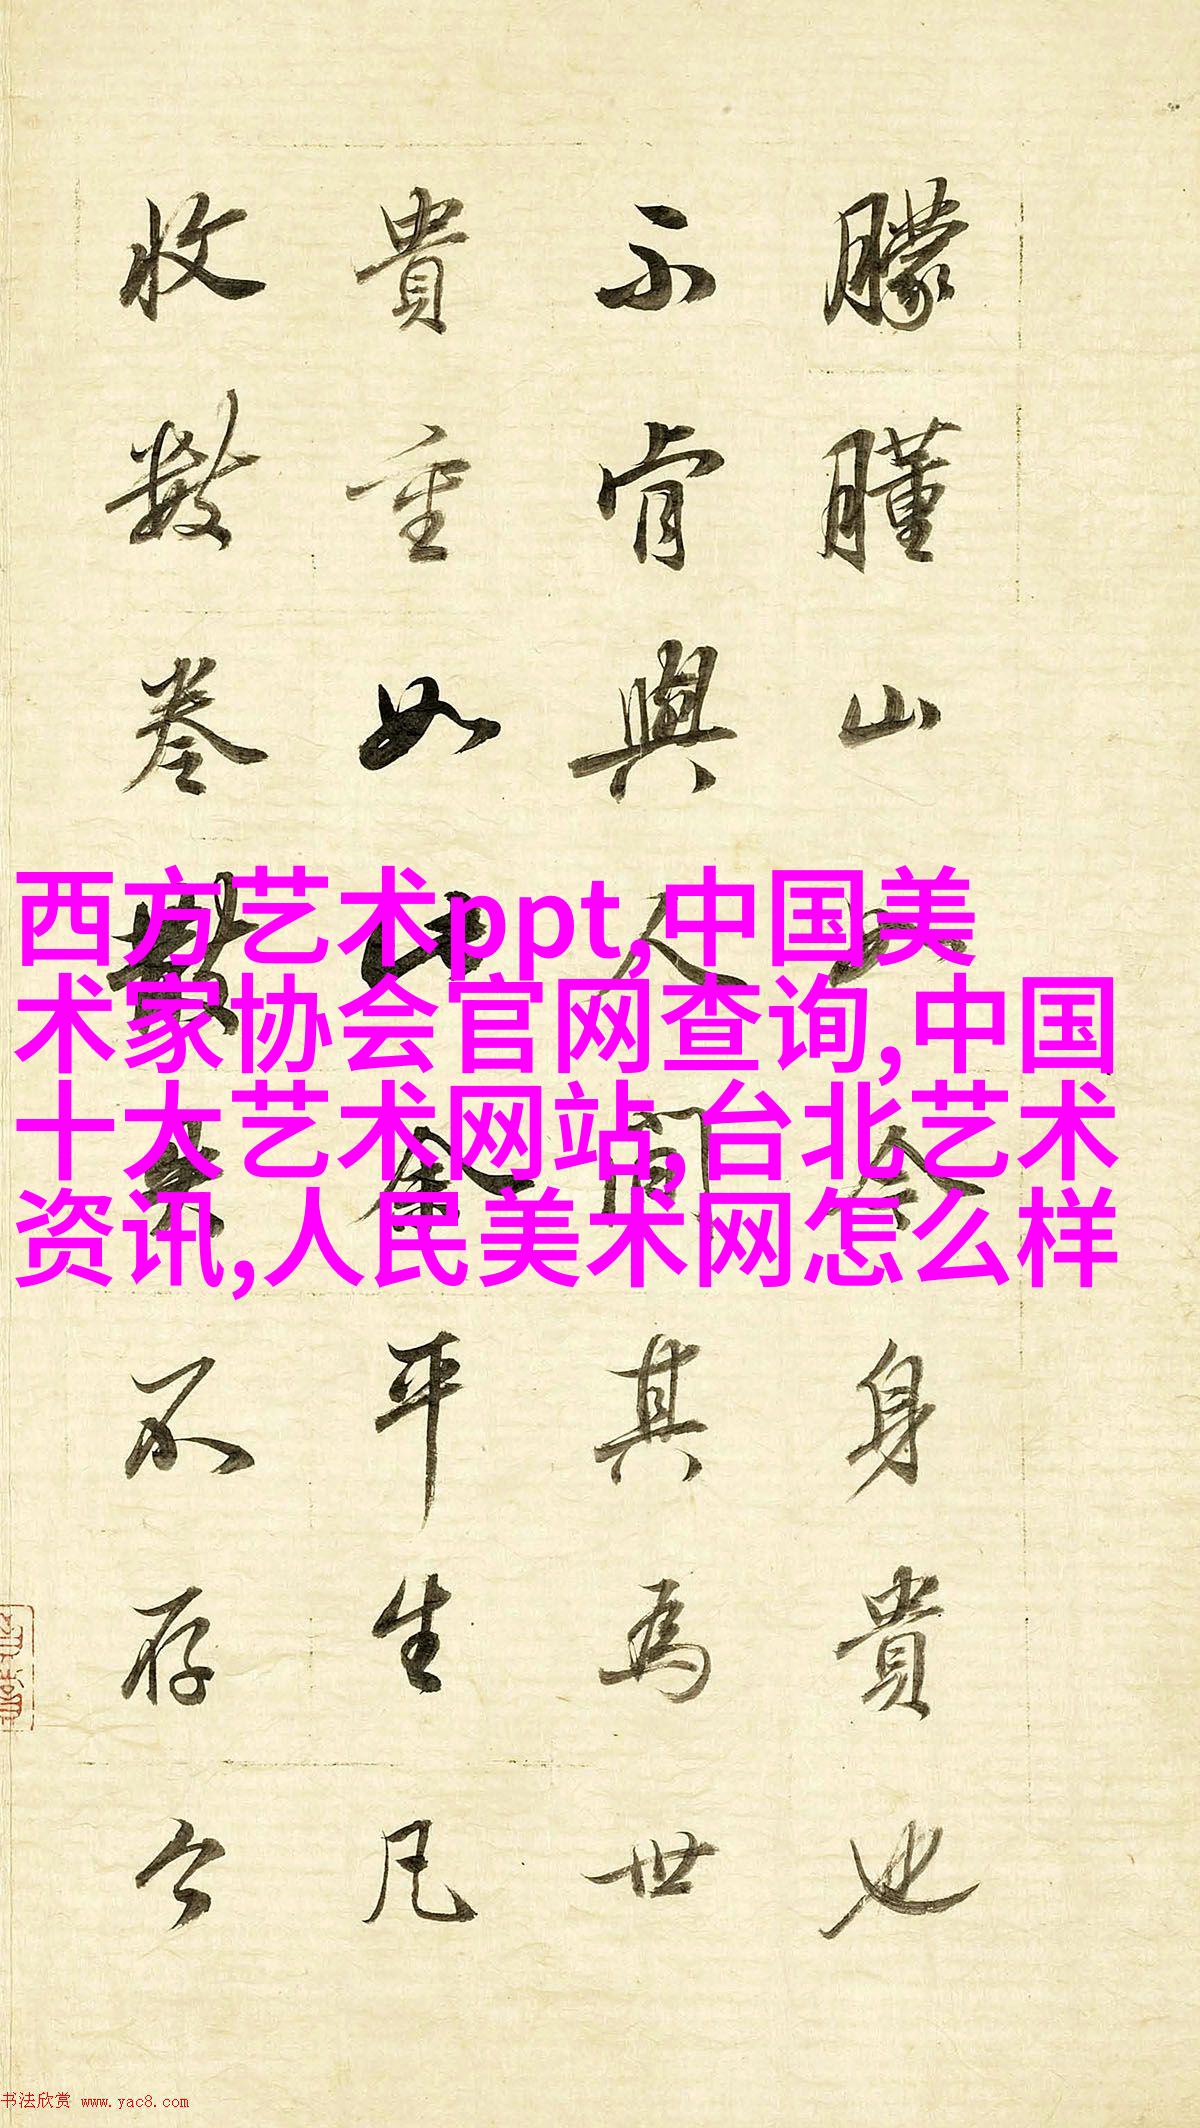 朦朣山身貴也
不肯與人間其為世
貴重如此平生凡
收數卷不存今
西方艺术ppt,中国美
术家协会官网查询,中国
十大艺术网站,台北艺术
资讯,人民美术网怎么样
书法欣赏 www.yac8.com